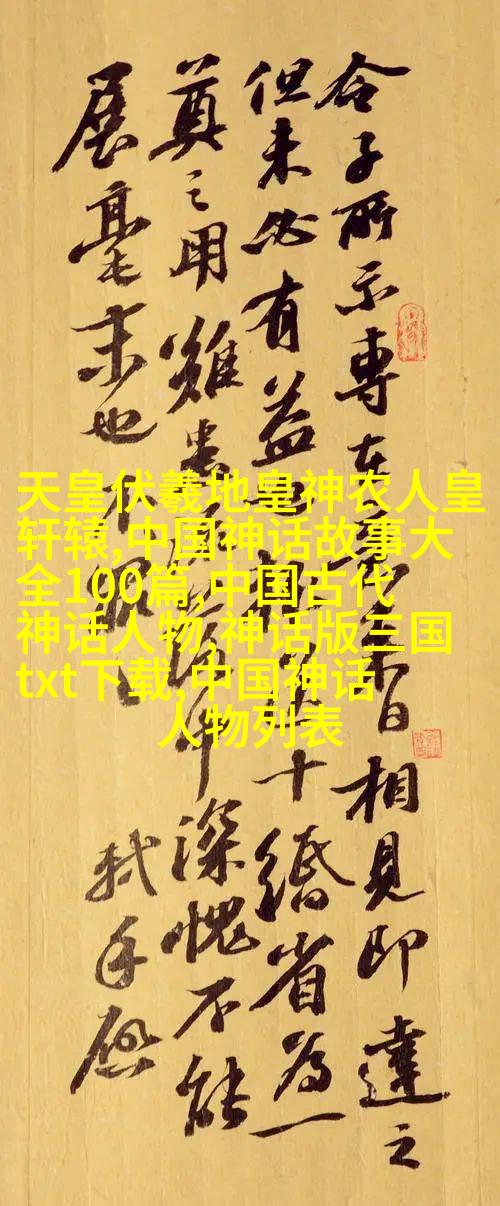 天皇伏羲地皇神农人皇
轩辕,中国神话故事大
全100篇,中国古代
神话人物,神话版三国
txt下载,中国神话
人物列表
令子所示專在日相見即達之
但未必有益也十緡省為一
奠之用雖深愧不能
展毫末也不
軾手啟